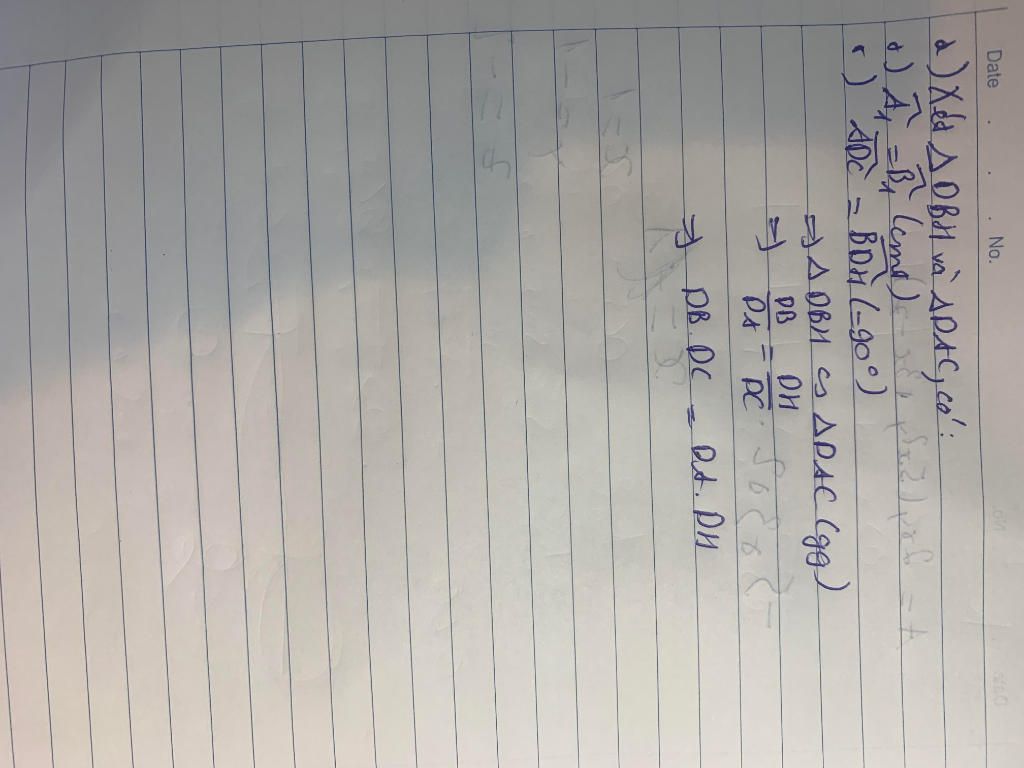 Date . . . No.
d) Xét Δ DBH và ΔDAC, có:
+) Â₁ = B̂₁ (cmt)
+) ADC = BDH (=90°)
=) Δ DBH ∽ ΔDAC (gg)
=) DB/DA = DH/DC
=) DB.DC = DA.DH